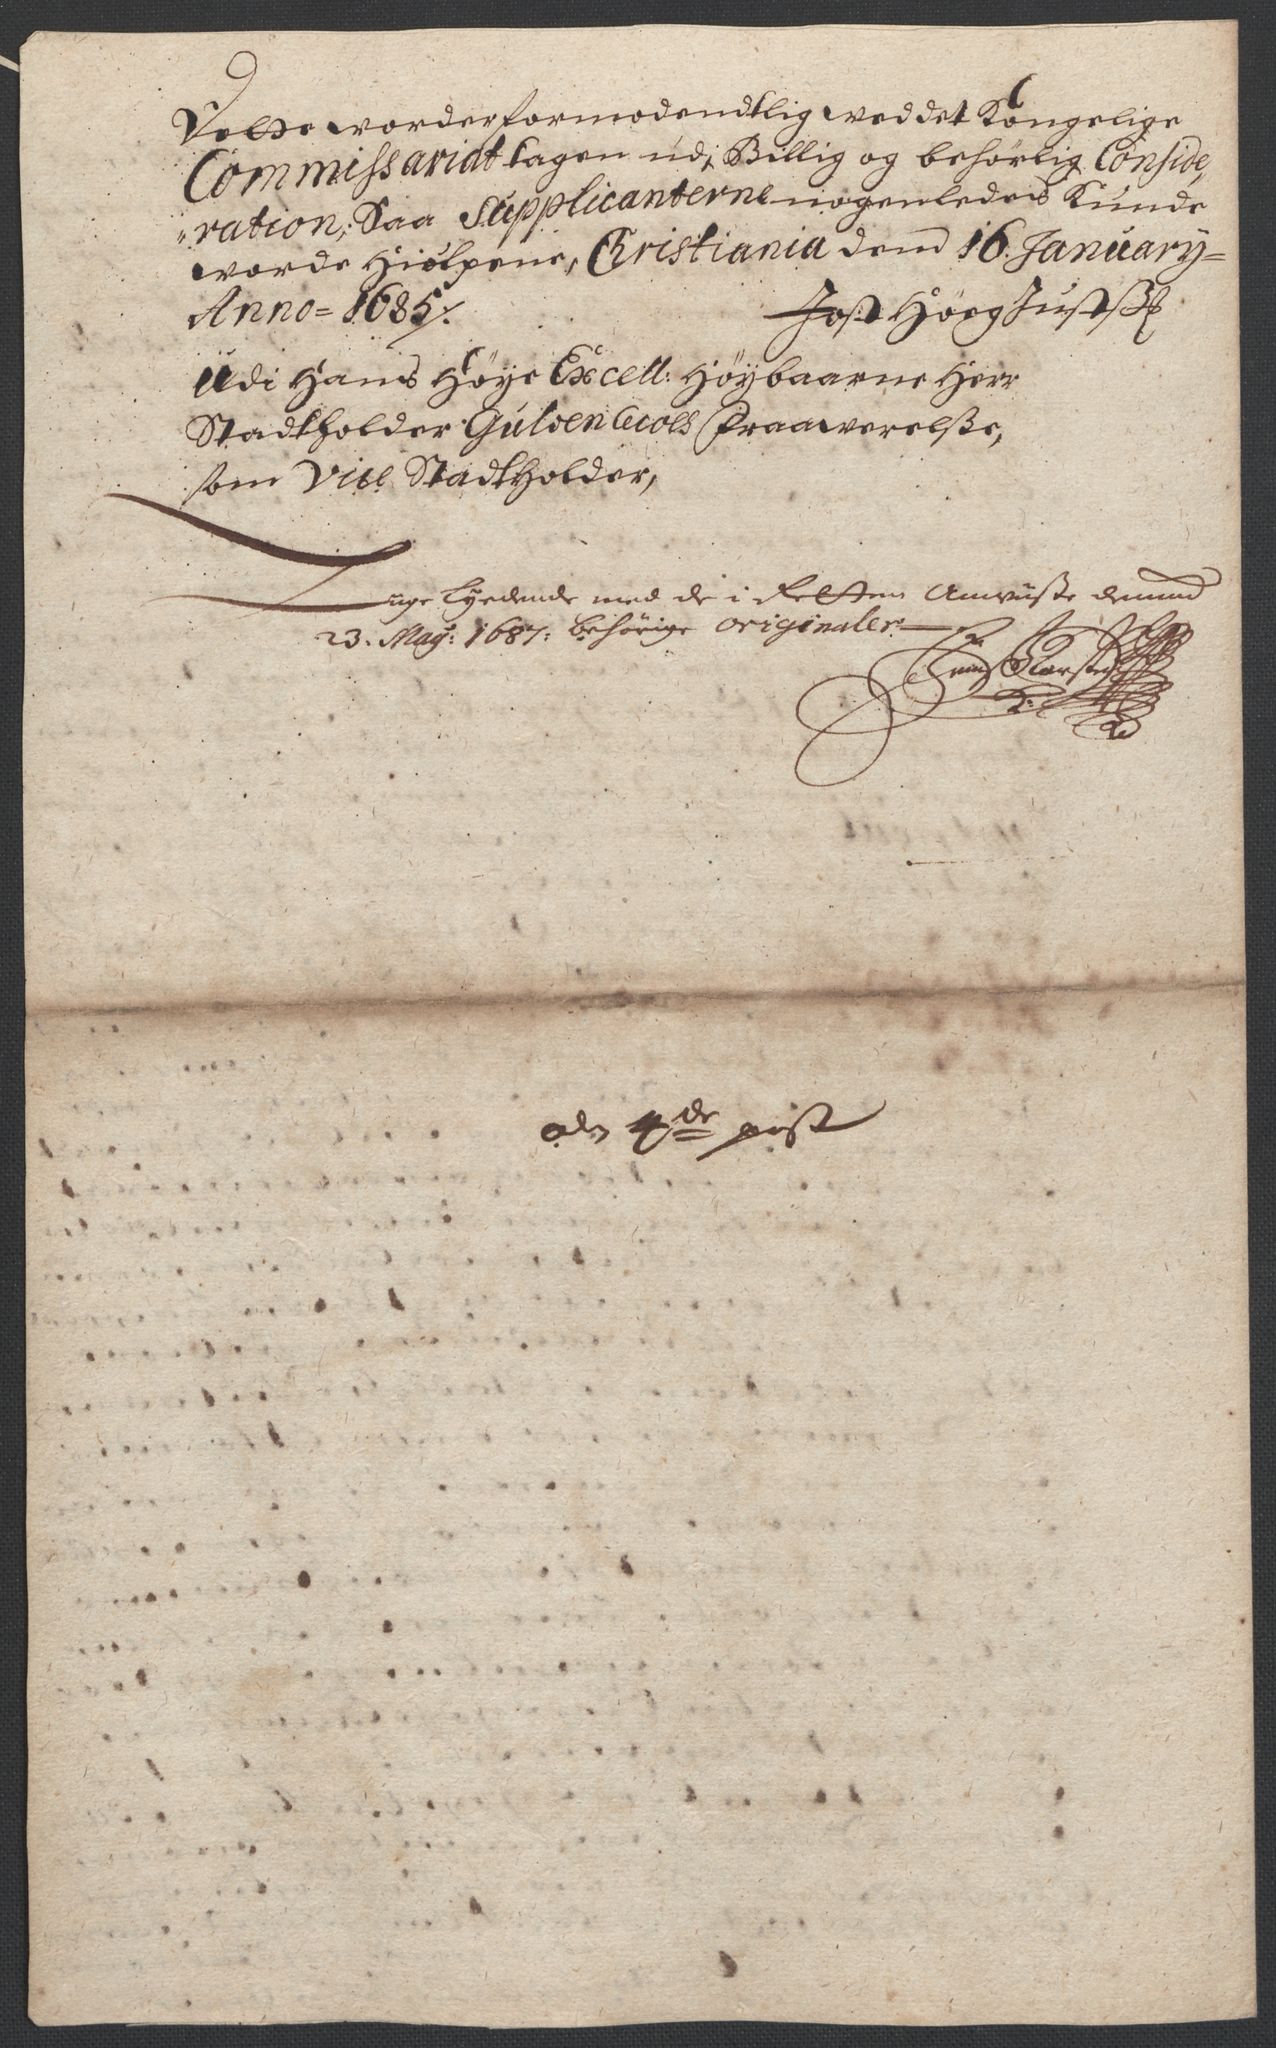 Dette worder formodendtlig wed det Kongelige
Commissariat tagen udj Billig og behørlig Conside,
ration, Saa Supplicanterne nogenledes Kunde
worde Hiølpene, Christiania dend 16. January=
Anno= 1685/.
Jost Høeg Justß:
Udi Hans Høye Excell: Høybaarne Herr
Stadtholder Guldenlewes Fraawerelße,
som Vice Stadtholder,
Liige Lydende med de i Retten Anwiiste dennd
23. Maÿ: 1687: behørige originaler
den 4de post